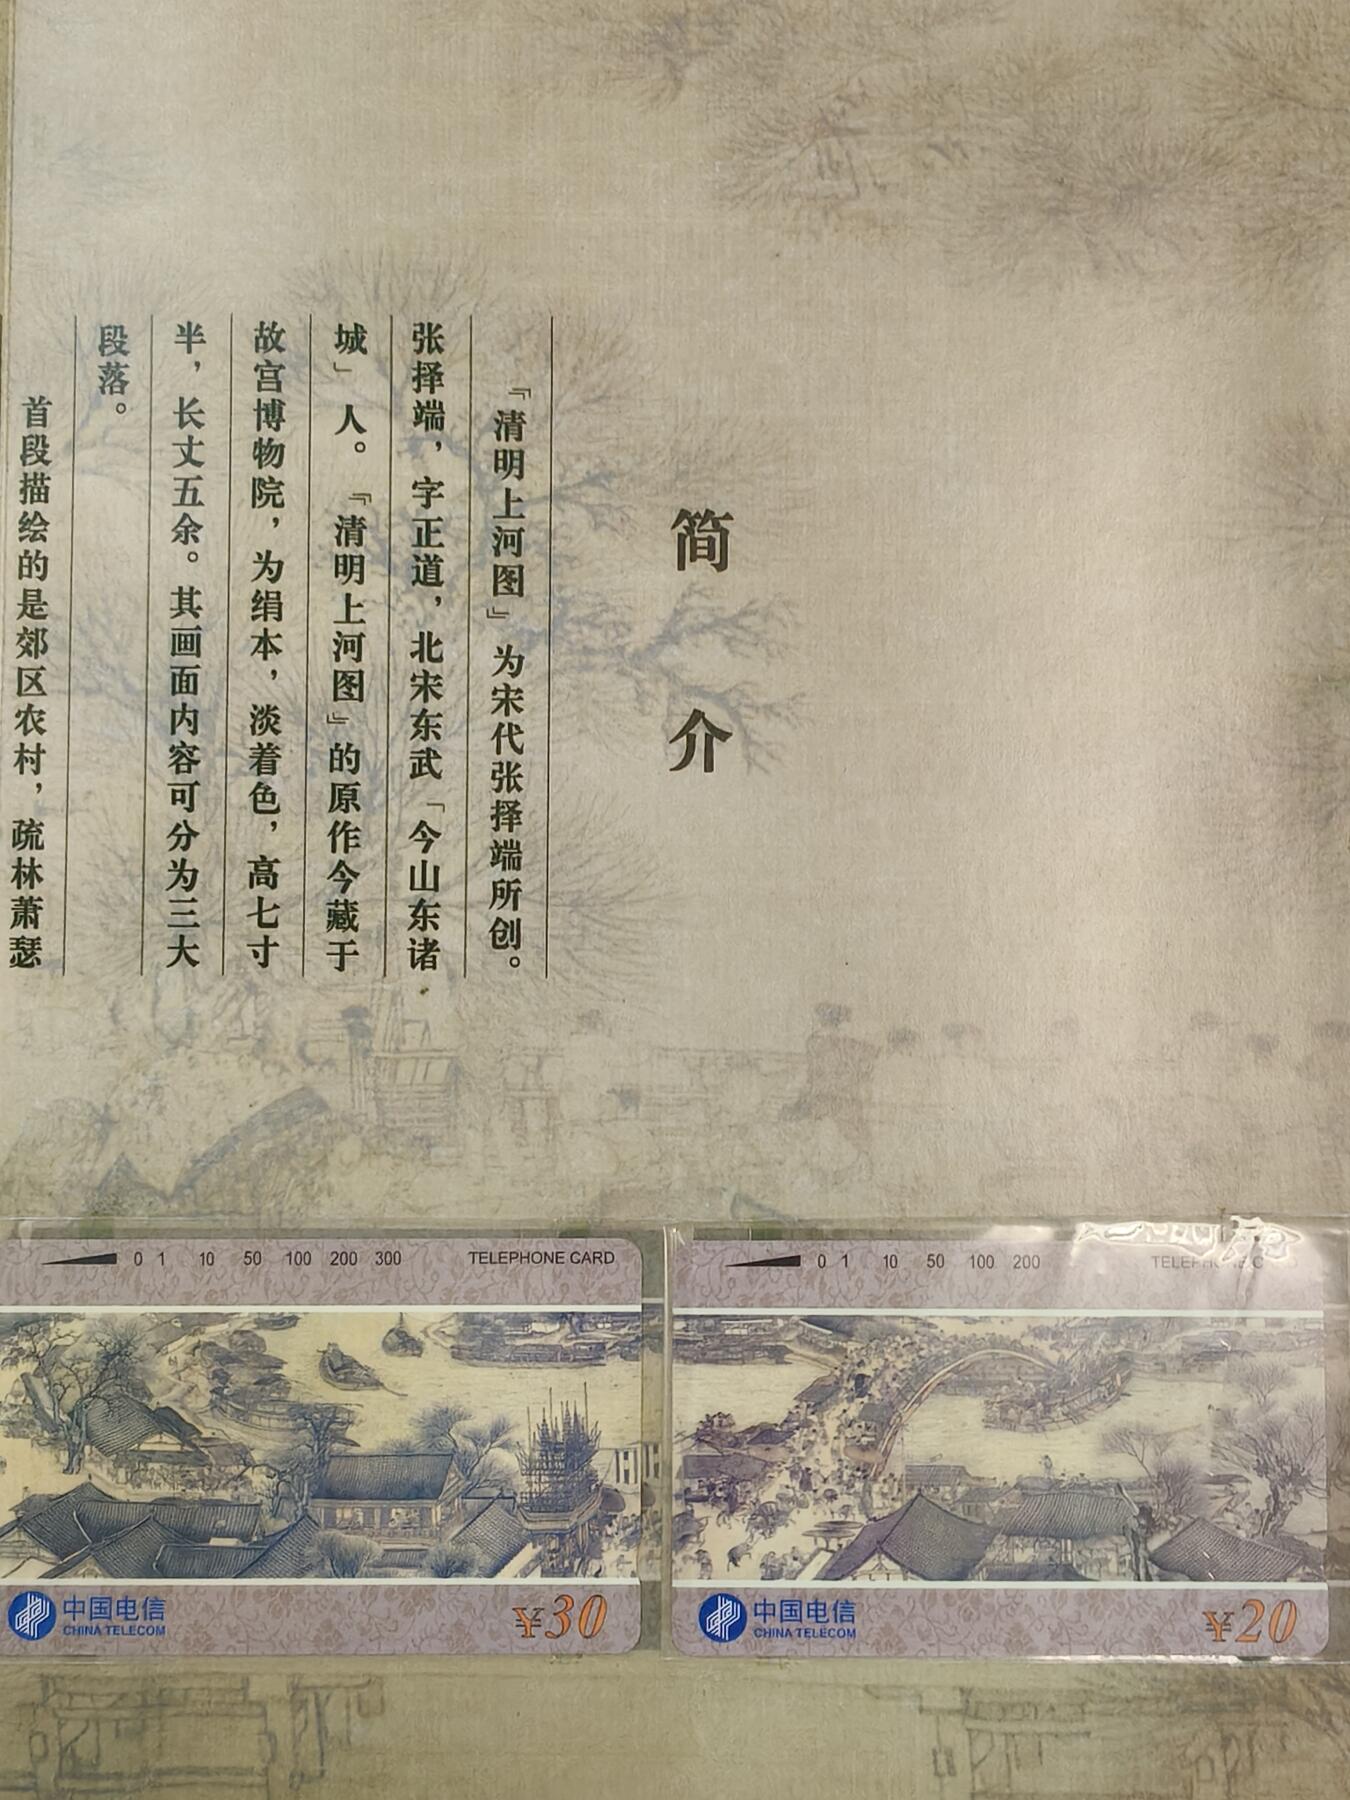 简介
『清明上河图』为宋代张择端所创。
张择端，字正道，北宋东武「今山东诸
城」人。『清明上河图』的原作今藏于
故宫博物院，为绢本，淡着色，高七寸
半，长丈五余。其画面内容可分为三大
段落。
首段描绘的是郊区农村，疏林萧瑟
0 1 10 50 100 200 300 TELEPHONE CARD
中国电信
CHINA TELECOM
¥30
0 1 10 50 100 200 TELEPHONE C
中国电信
CHINA TELECOM
¥20